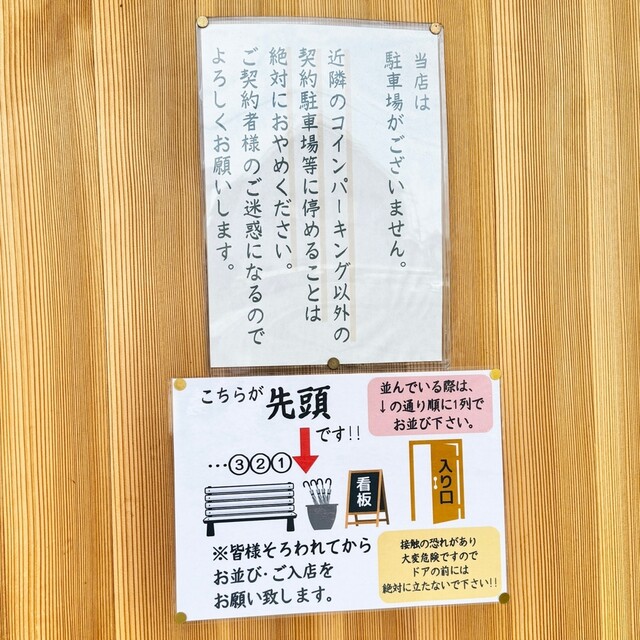 当店は
駐車場がございません。
近隣のコインパーキング以外の
契約駐車場等に停めることは
絶対におやめください。
ご契約者様のご迷惑になるので
よろしくお願いします。
こちらが 先頭
です!!
並んでいる際は、
↓の通り順に1列で
お並び下さい。
…③②①
看板
入り口
※皆様そろわれてから
お並び・ご入店を
お願い致します。
接触の恐れがあり
大変危険ですので
ドアの前には
絶対に立たないで下さい!!